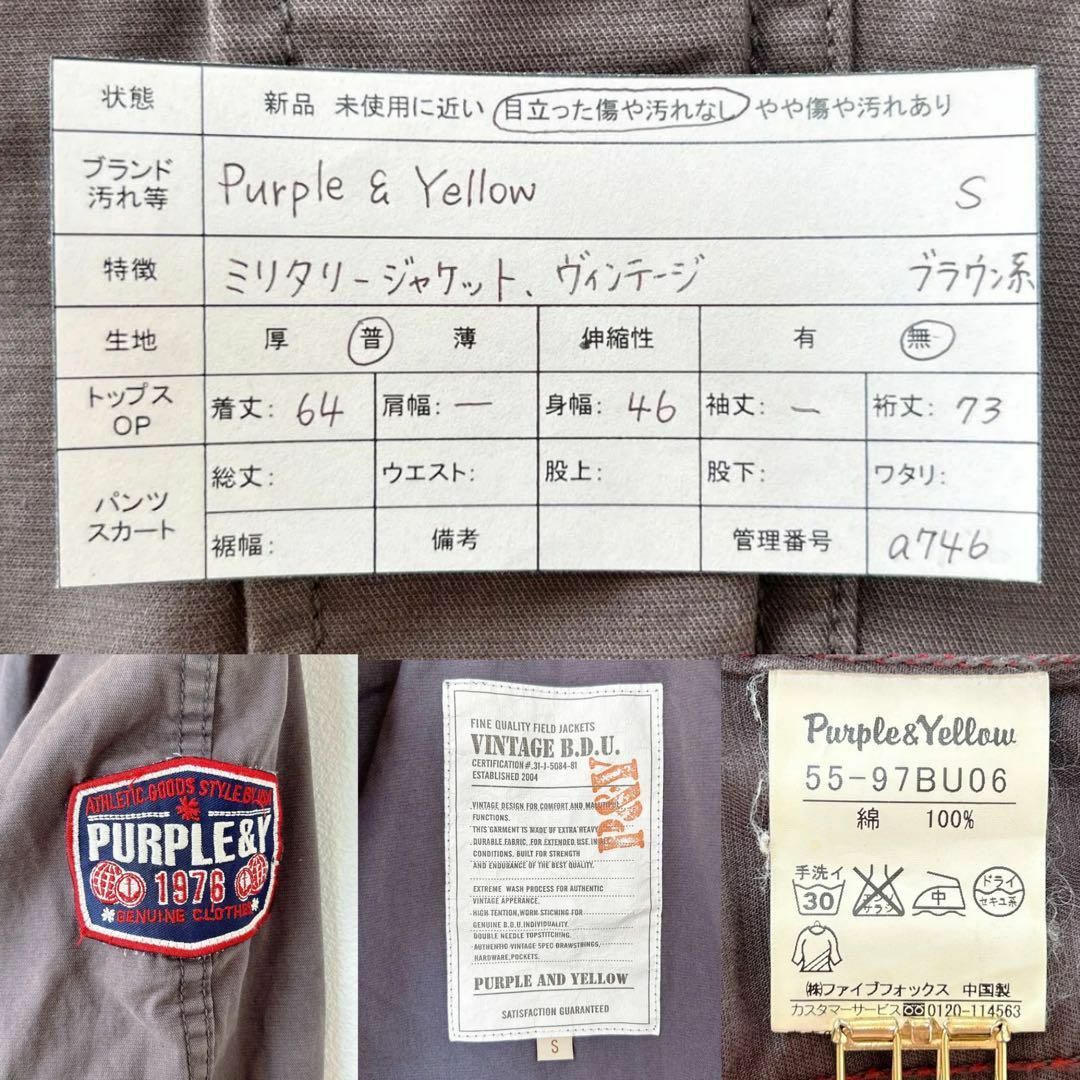 状態 新品 未使用に近い 目立った傷や汚れなし やや傷や汚れあり
ブランド
汚れ等
Purple & Yellow S
特徴 ミリタリージャケット、ヴィンテージ ブラウン系
生地 厚 普 薄 伸縮性 有 無
トップス
OP
着丈: 64 肩幅: ー 身幅: 46 袖丈: ー 裄丈: 73
パンツ
スカート
総丈: ウエスト: 股上: 股下: ワタリ:
裾幅: 備考 管理番号 a746
ATHLETIC GOODS STYLE
PURPLE&Y
1976
GENUINE CLOTHES
FINE QUALITY FIELD JACKETS
VINTAGE B.D.U.
CERTIFICATION#.31-J-5084-81
ESTABLISHED 2004
P&Y
VINTAGE DESIGN FOR COMFORT AND
FUNCTIONS.
THIS GARMENT IS MADE OF EXTRA HEAVY
DURABLE FABRIC, FOR EXTENDED USE IN
CONDITIONS. BUILT FOR STRENGTH
AND ENDURANCE OF THE BEST QUALITY.
EXTREME WASH PROCESS FOR AUTHENTIC
VINTAGE APPERANCE.
HIGH TENTION, WORK STICHING FOR
GENUINE B.D.U. INDIVIDUALITY.
DOUBLE NEEDLE TOPSTITCHING.
AUTHENTIC VINTAGE SPEC DRAWSTRINGS,
HARDWARE, POCKETS.
PURPLE AND YELLOW
SATISFACTION GUARANTEED
S
Purple&Yellow
55-97BU06
綿 100%
手洗イ
30
エンソ
サラシ
中
ドライ
セキユ系
㈱ファイブフォックス 中国製
カスタマーサービス 0120-114563